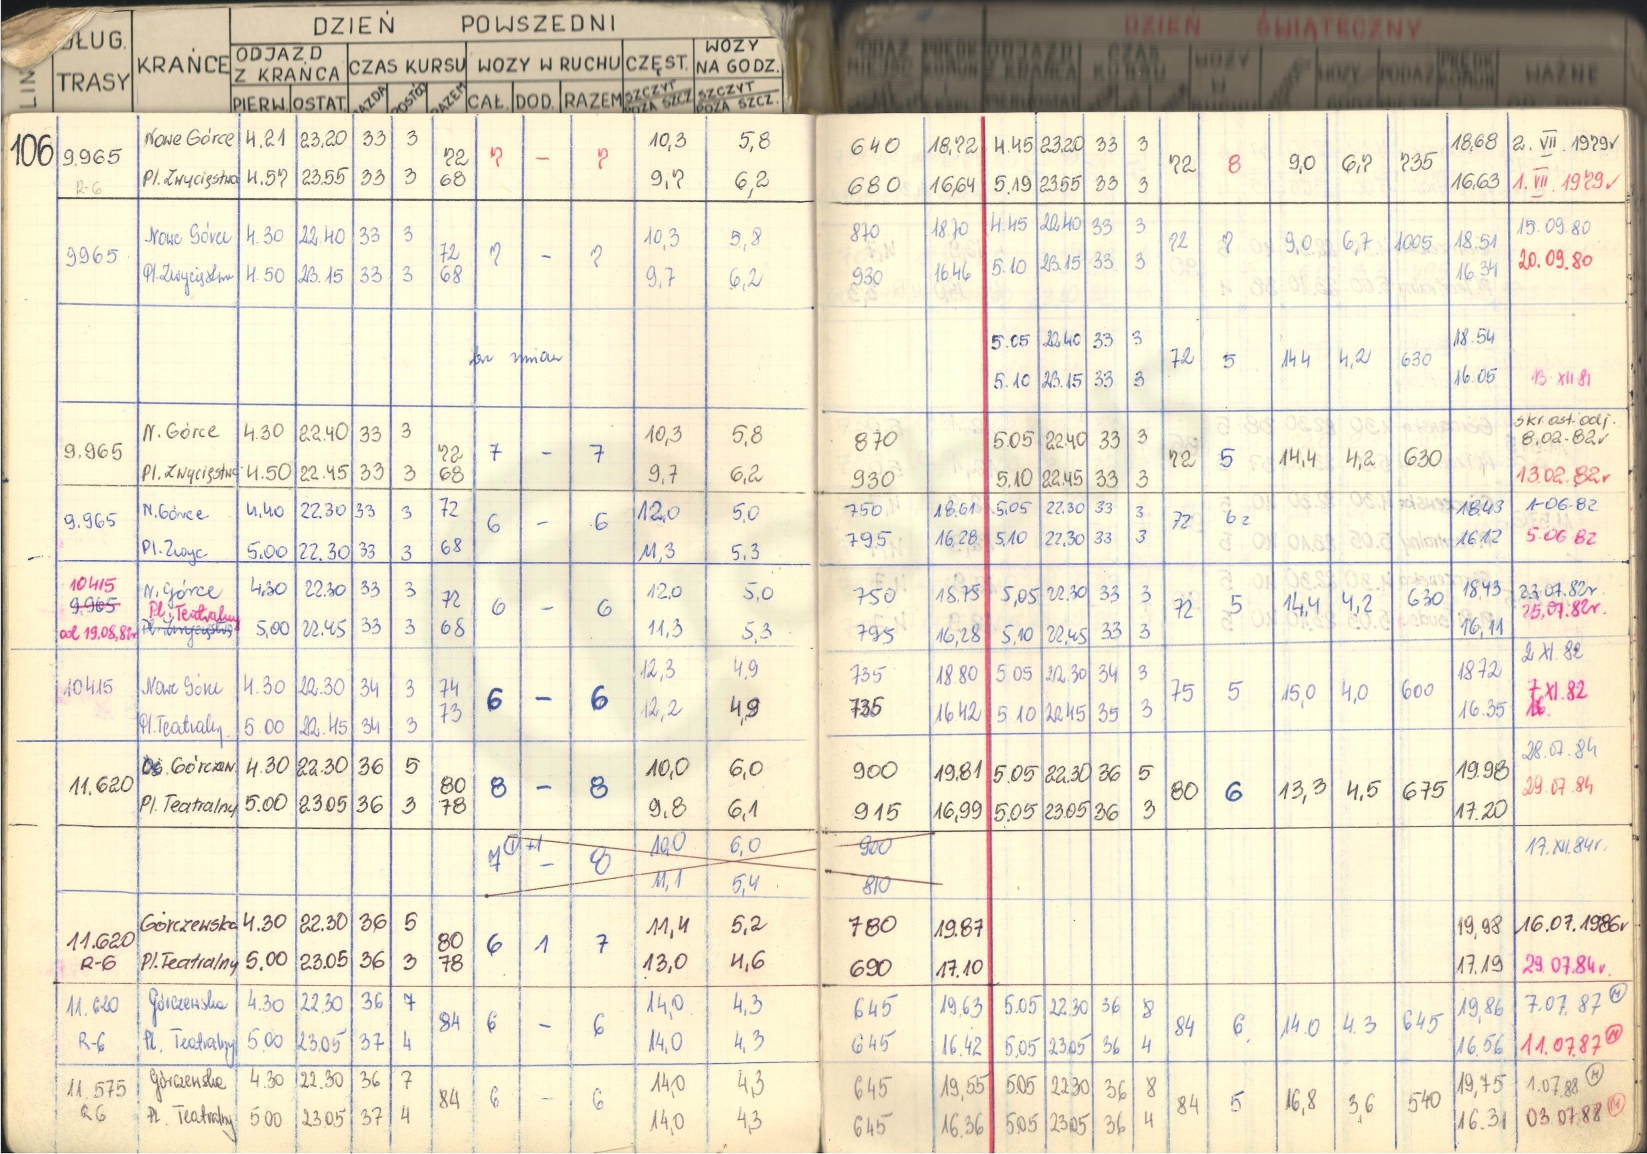 DZIEŃ POWSZEDNI DZIEŃ ŚWIĄTECZNY
DŁUG. TRASY KRAŃCE ODJAZD Z KRAŃCA CZAS KURSU WOZY W RUCHU CZĘST. WOZY NA GODZ.
LIN PIERW. OSTAT. JAZDA POSTÓJ RAZEM CAŁ. DOD. RAZEM SZCZYT POZA SZCZ. SZCZYT POZA SZCZ. WAŻNE
106 Nowe Górce 4.21 23.20 33 3 10,3 5,8 640 18,72 4.45 23.20 33 3 18,68 2. VII. 1979r
9.965 72 7 – 7 72 8 9,0 6,7 735
R-6 Pl. Zwycięstwa 4.57 23.55 33 3 68 9,7 6,2 680 16,64 5.19 23.55 33 3 16,63 1. VII. 1979r
Nowe Górce 4.30 22.40 33 3 10,3 5,8 870 18.70 4.45 22.40 33 3 15.09.80
9965 72 7 – 7 72 7 9,0 6,7 1005 18.51
Pl. Zwycięstwa 4.50 23.15 33 3 68 9,7 6,2 930 16.46 5.10 23.15 33 3 16.34 20.09.80
5.05 22.40 33 3 18.54
bez zmian 72 5 14.4 4,2 630
5.10 23.15 33 3 16.05 13 XII 81
N. Górce 4.30 22.40 33 3 10,3 5,8 870 5.05 22.40 33 3 skr. ost. odj. 8.02-82r
9.965 72 7 – 7 72 5 14,4 4,2 630
Pl. Zwycięstwa 4.50 22.45 33 3 68 9,7 6,2 930 5.10 22.45 33 3 13.02.82r
N. Górce 4.40 22.30 33 3 72 12,0 5,0 750 18,61 5.05 22.30 33 3 18.43 1-06.82
9.965 6 – 6 72
Pl. Zwyc 5.00 22.30 33 3 68 11,3 5,3 795 16.28 5.10 22.30 33 3 16.12 5.06 82
10415 N. Górce 4.30 22.30 33 3 12,0 5,0 750 18.75 5,05 22.30 33 3 18,43 23.07.82r
9.965 Pl. Teatralny 72 6 – 6 72 5 14,4 4,2 630 25.07.82r.
od 19.08.82r Pl. Zwycięstwa 5,00 22.45 33 3 68 11,3 5,3 795 16,28 5,10 22.45 33 3 16,11
Nowe Górce 4.30 22.30 34 3 74 12,3 4,9 735 18.80 5 05 22.30 34 3 18 72 2 XI. 82
10415 6 – 6 75 5 15,0 4,0 600 7 XI. 82
Pl. Teatralny 5.00 22.45 34 3 73 12,2 4,9 735 16.42 5 10 22.45 35 3 16.35
Górczew 4.30 22.30 36 5 10,0 6,0 900 19.81 5.05 22.30 36 5 19.98 28.07.84
11.620 80 8 – 8 80 6 13,3 4,5 675 29.07.84
Pl. Teatralny 5.00 23.05 36 3 78 9.8 6,1 915 16,99 5.05 23.05 36 3 17.20
7 +1 – 8 10,0 6,0 900 17.XII.84r.
11,1 5,4 810
Górczewska 4.30 22.30 36 5 11,4 5,2 780 19.87 19,98 16.07.1986r
11.620 80 6 1 7
R-6 Pl. Teatralny 5.00 23.05 36 3 78 13,0 4,6 690 17.10 17.19 29.07.84r.
11.620 Górczewska 4.30 22.30 36 7 14,0 4,3 645 19,63 5.05 22.30 36 8 19,86 7.07.87
84 6 – 6 84 6. 14.0 4.3 645
R-6 Pl. Teatralny 5.00 23.05 37 4 14,0 4,3 645 16.42 5,05 23.05 36 4 16.56 11.07.87
11.575 Górczewska 4.30 22.30 36 7 14,0 4,3 645 19,55 5.05 22.30 36 8 19,75 1.07.88
R6 84 6 – 6 84 5 16,8 3,6 540
Pl. Teatralny 5 00 23.05 37 4 14,0 4,3 645 16.36 5.05 23.05 36 4 16.31 03.07.88